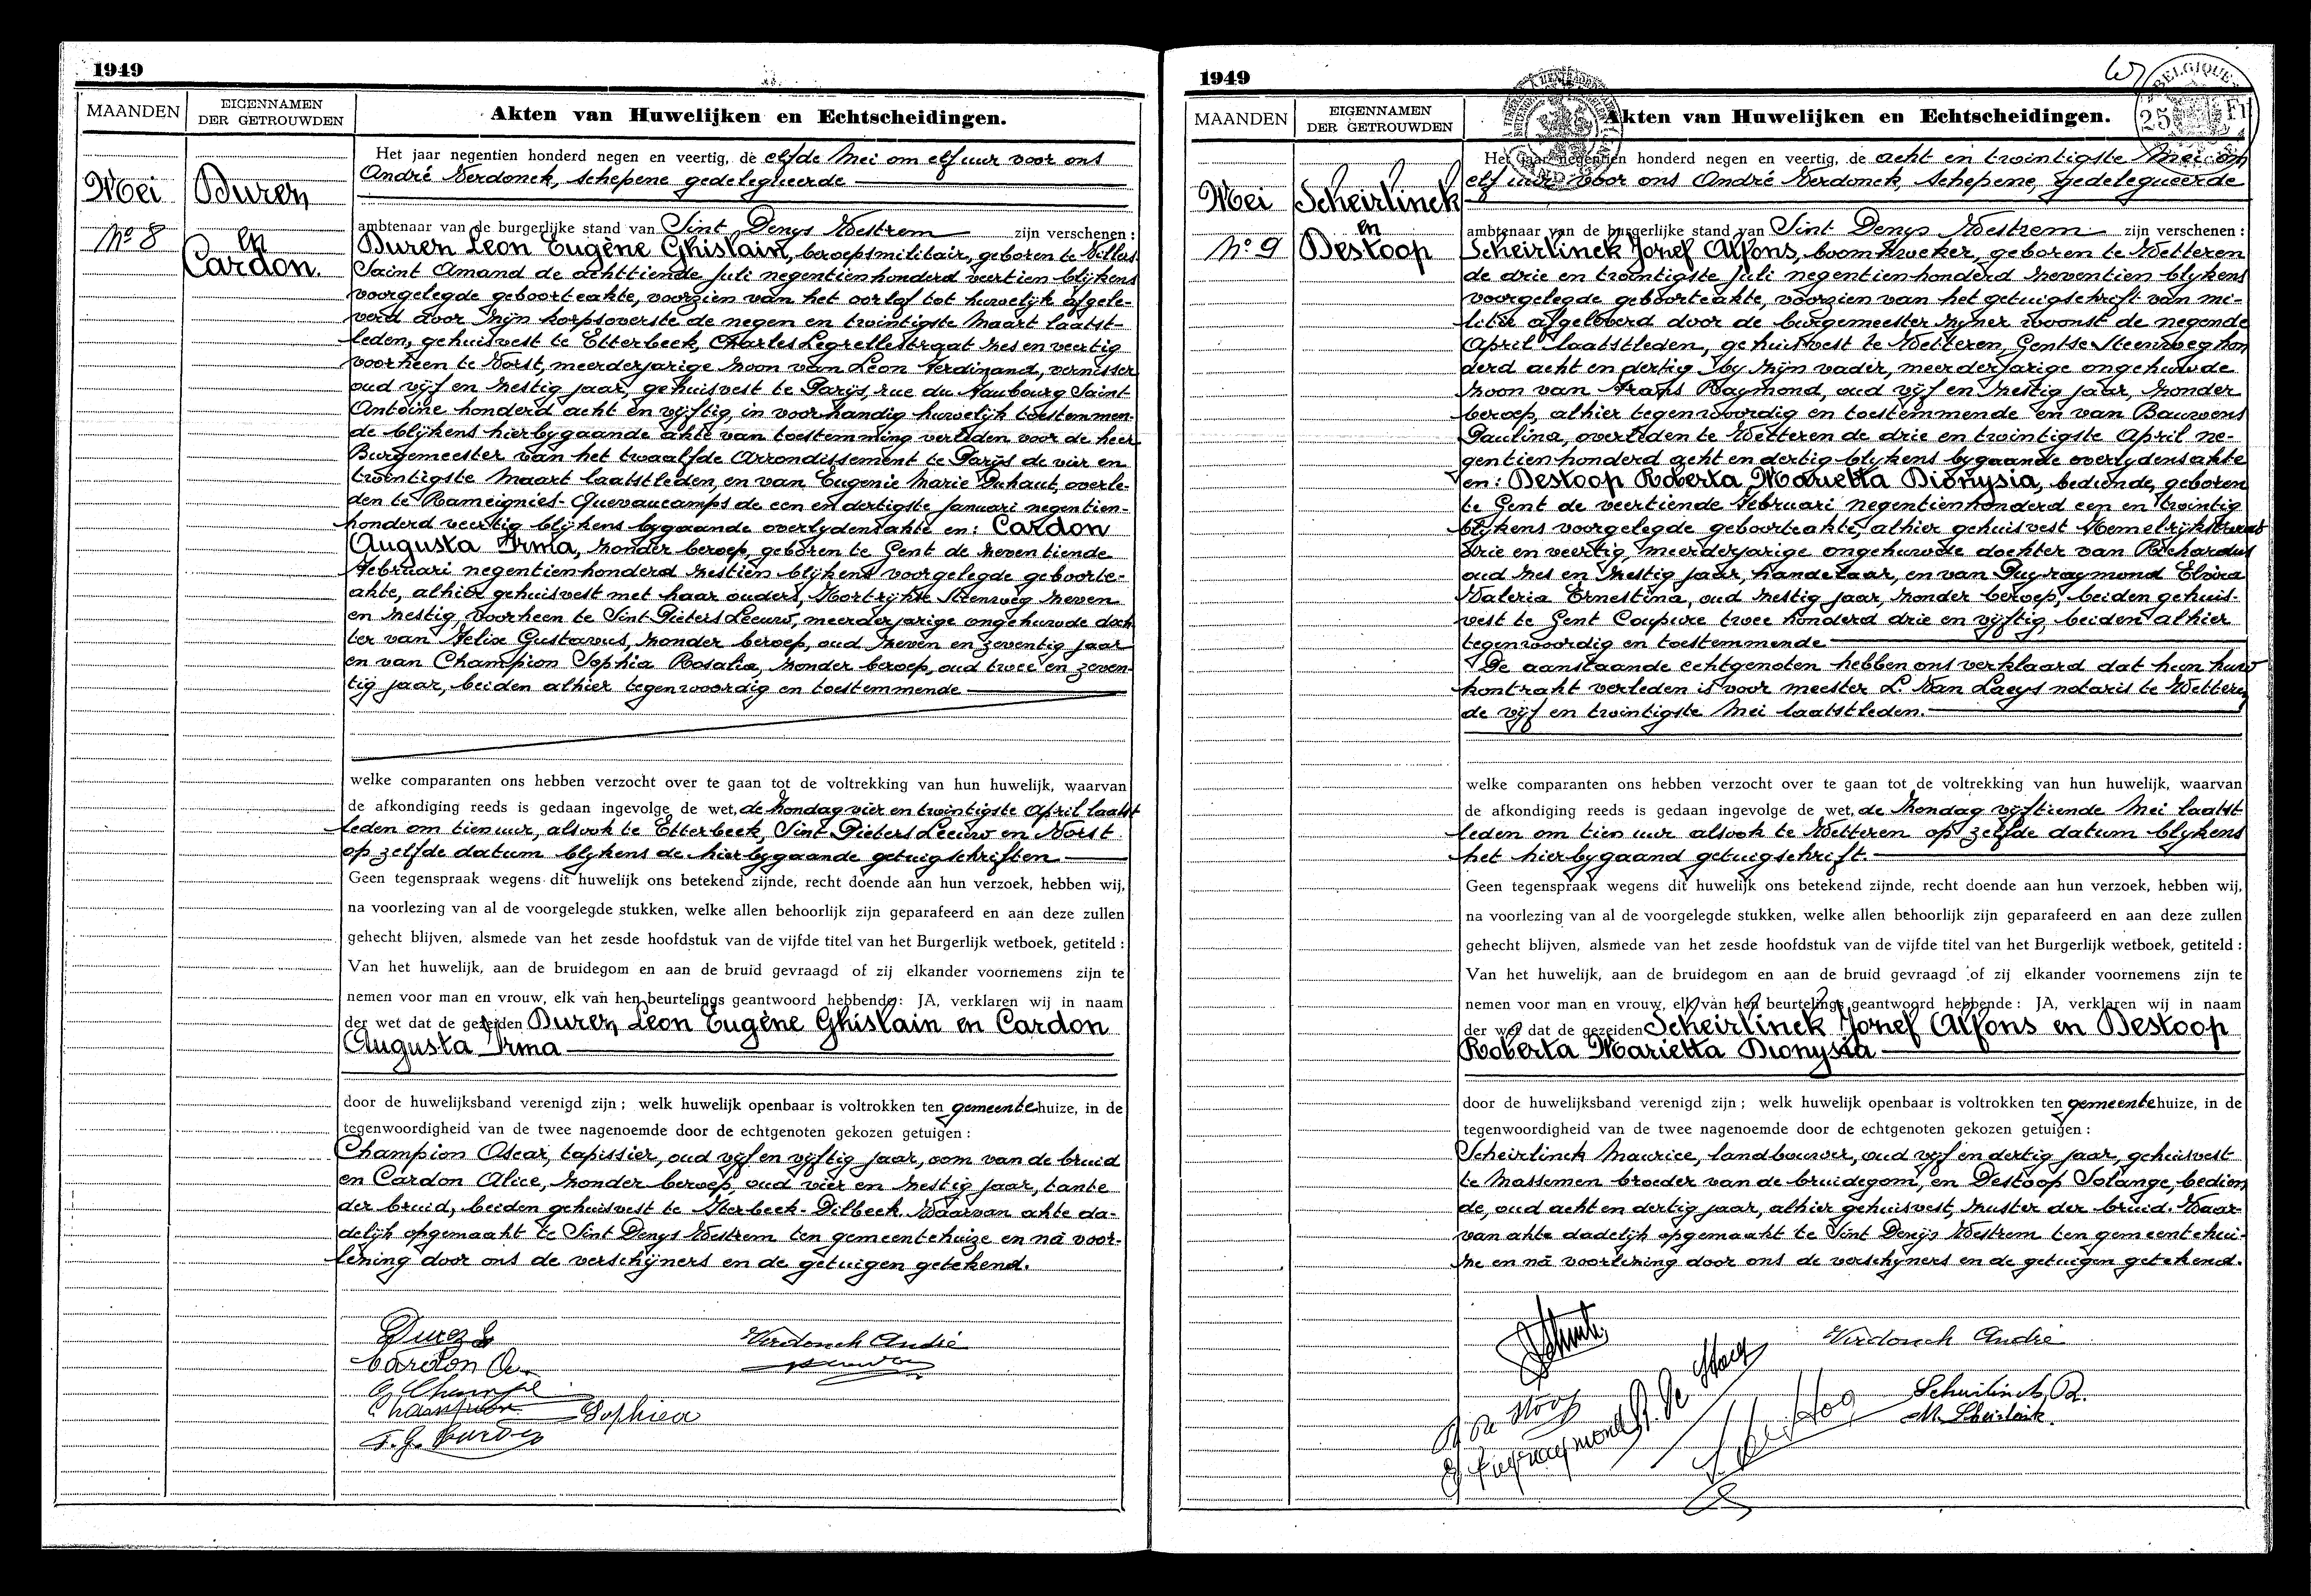 1949
MAANDEN
EIGENNAMEN
DER GETROUWDEN
Akten van Huwelijken en Echtscheidingen.
Mei
No 8
Durez
en
Cardon.
Het jaar negentien honderd negen en veertig, de elfde Mei om elf uur voor ons
André Verdonck, schepene gedelegueerde
ambtenaar van de burgerlijke stand van Sint Denys Westrem zijn verschenen :
Durez Leon Eugène Ghislain, beroepsmilitair, geboren te Villers
Saint Amand de achttiende Juli negentienhonderd veertien blijkens
voorgelegde geboorteakte, voorzien van het oorlof tot huwelijk afgele-
verd door zijn korpsoverste de negen en twintigste Maart laatst-
leden, gehuisvest te Etterbeek, Charles Legrellestraat zes en veertig
voorheen te Vorst, meerderjarige zoon van Leon Ferdinand, vernisser
oud vijf en zestig jaar, gehuisvest te Parijs, rue du Faubourg Saint
Antoine honderd acht en vijftig, in voorhandig huwelijk toestemmen-
de blijkens hierbygaande akte van toestemming verleden voor de heer
Burgemeester van het twaalfde Arrondissement te Parijs de vier en
twintigste Maart laatstleden, en van Eugenie Marie Duhaut, overle-
den te Rameignies-Quevaucamps de een en dertigste Januari negentien-
honderd veertig blijkens bygaande overlydensakte en: Cardon
Augusta Irma, zonder beroep, geboren te Gent de zeventiende
Februari negentienhonderd zestien blijkens voorgelegde geboorte-
akte, alhier gehuisvest met haar ouders, Kortrijkse Steenweg zeven
en zestig, voorheen te Sint Pieters Leeuw, meerderjarige ongehuwde doch
ter van Felix Gustavus, zonder beroep, oud zeven en zeventig jaar
en van Champion Sophia Rosalia, zonder beroep, oud twee en zeven-
tig jaar, beiden alhier tegenwoordig en toestemmende
welke comparanten ons hebben verzocht over te gaan tot de voltrekking van hun huwelijk, waarvan
de afkondiging reeds is gedaan ingevolge de wet, de Zondag vier en twintigste April laatst
leden om tien uur, alsook te Etterbeek, Sint Pieters Leeuw en Vorst
op zelfde datum blijkens de hierbygaande getuigschriften
Geen tegenspraak wegens dit huwelijk ons betekend zijnde, recht doende aan hun verzoek, hebben wij,
na voorlezing van al de voorgelegde stukken, welke allen behoorlijk zijn geparafeerd en aan deze zullen
gehecht blijven, alsmede van het zesde hoofdstuk van de vijfde titel van het Burgerlijk wetboek, getiteld :
Van het huwelijk, aan de bruidegom en aan de bruid gevraagd of zij elkander voornemens zijn te
nemen voor man en vrouw, elk van hen beurtelings geantwoord hebbende: JA, verklaren wij in naam
der wet dat de gezeiden Durez Leon Eugène Ghislain en Cardon
Augusta Irma
door de huwelijksband verenigd zijn ; welk huwelijk openbaar is voltrokken ten gemeentehuize, in de
tegenwoordigheid van de twee nagenoemde door de echtgenoten gekozen getuigen :
Champion Oscar, tapissier, oud vijf en vijftig jaar, oom van de bruid
en Cardon Alice, zonder beroep, oud vier en zestig jaar, tante
der bruid, beiden gehuisvest te Itterbeek-Dilbeek. Waarvan akte da-
delijk opgemaakt te Sint Denys Westrem ten gemeentehuize en nà voor-
lezing door ons de verschijners en de getuigen getekend.
Durez L
Cardon A.
Verdonck André
Champion Sophica
1949
25 Fr
BELGIQUE
MAANDEN
EIGENNAMEN
DER GETROUWDEN
Akten van Huwelijken en Echtscheidingen.
Mei
No 9
Scheirlinck
en
Destoop
Het jaar negentien honderd negen en veertig, de acht en twintigste Mei om
elf uur voor ons André Verdonck, Schepene, Gedelegueerde
ambtenaar van de burgerlijke stand van Sint Denys Westrem zijn verschenen :
Scheirlinck Jozef Alfons, boomkweker, geboren te Wetteren
de drie en twintigste Juli negentienhonderd zeventien blykens
voorgelegde geboorteakte, voorzien van het getuigschrift van mi-
litie afgeleverd door de burgemeester zijner woonst de negende
April laatstleden, gehuisvest te Wetteren, Gentse Steenweg hon
derd acht en dertig by zijn vader, meerderjarige ongehuwde
zoon van Frans Raymond, oud vijf en zestig jaar, zonder
beroep, alhier tegenwoordig en toestemmende en van Bauwens
Paulina, overleden te Wetteren de drie en twintigste April ne-
gentienhonderd acht en dertig blykens bygaande overlydensakte
en: Destoop Roberta Marietta Dionysia, bediende, geboren
te Gent de veertiende Februari negentienhonderd een en twintig
blykens voorgelegde geboorteakte, alhier gehuisvest Hemelrijkstraat
drie en veertig, meerderjarige ongehuwde dochter van Richardus
oud zes en zestig jaar, handelaar, en van Puyraymond Elvira
Valeria Ernestina, oud zestig jaar, zonder beroep, beiden gehuis-
vest te Gent Coupure twee honderd drie en vijftig, beiden alhier
tegenwoordig en toestemmende
De aanstaande echtgenoten hebben ons verklaard dat hun huw
kontrakt verleden is voor meester L. Van Laeys notaris te Wetteren
de vijf en twintigste Mei laatstleden.
welke comparanten ons hebben verzocht over te gaan tot de voltrekking van hun huwelijk, waarvan
de afkondiging reeds is gedaan ingevolge de wet, de Zondag vijftiende Mei laatst
leden om tien uur alsook te Wetteren op zelfde datum blykens
het hierbygaand getuigschrift.
Geen tegenspraak wegens dit huwelijk ons betekend zijnde, recht doende aan hun verzoek, hebben wij,
na voorlezing van al de voorgelegde stukken, welke allen behoorlijk zijn geparafeerd en aan deze zullen
gehecht blijven, alsmede van het zesde hoofdstuk van de vijfde titel van het Burgerlijk wetboek, getiteld :
Van het huwelijk, aan de bruidegom en aan de bruid gevraagd of zij elkander voornemens zijn te
nemen voor man en vrouw, elk van hen beurtelings geantwoord hebbende : JA, verklaren wij in naam
der wet dat de gezeiden Scheirlinck Jozef Alfons en Destoop
Roberta Marietta Dionysia
door de huwelijksband verenigd zijn ; welk huwelijk openbaar is voltrokken ten gemeentehuize, in de
tegenwoordigheid van de twee nagenoemde door de echtgenoten gekozen getuigen :
Scheirlinck Maurice, landbouwer, oud vijf en dertig jaar, gehuisvest
te Massemen broeder van de bruidegom, en Destoop Solange, bedien
de, oud acht en dertig jaar, alhier gehuisvest, zuster der bruid. Waar
van akte dadelijk opgemaakt te Sint Denijs Westrem ten gemeentehui-
ze en nà voorlezing door ons de verschijners en de getuigen getekend.
Verdonck André
Scheirlinck R.
M. Scheirlinck